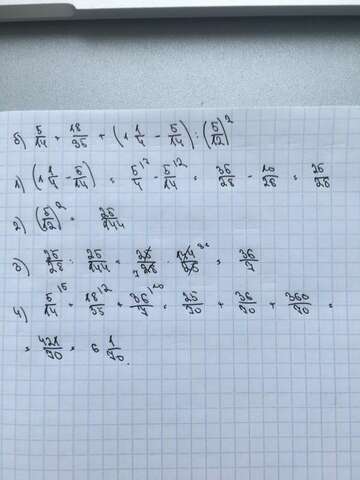 б) 5/14 + 18/35 + (1 1/4 - 5/14) : (5/12)²
1) (1 1/4 - 5/14) = 5\7/4 - 5\2/14 = 35/28 - 10/28 = 25/28
2) (5/12)² = 25/144
3) 25/28 : 25/144 = 25/28 7 · 144 36/25 = 36/7
4) 5\5/14 + 18\2/35 + 36\10/7 = 25/70 + 36/70 + 360/70 =
= 421/70 = 6 1/70.